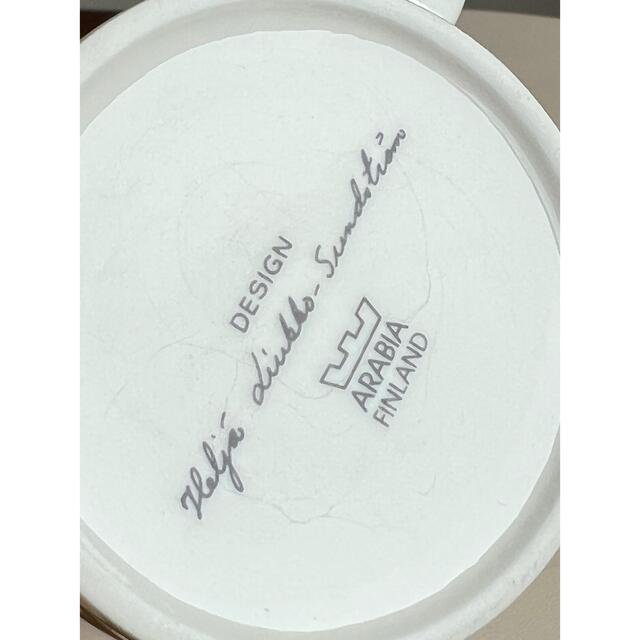 DESIGN
Heljä Liukko-Sundström
ARABIA
FINLAND